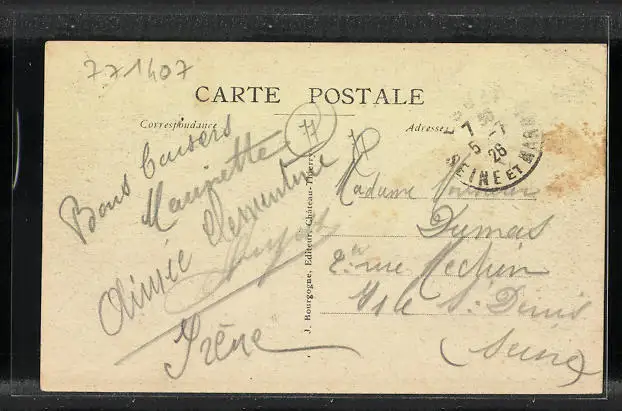 771407
CARTE POSTALE
Correspondance
Adresse
7
5-7
26
SEINE ET MARNE
Bons baisers
Marinette
Aimée Clementine
Irène
J. Bourgogne, Editeur, Château-Thierry
Madame
Dumas
2 rue Méchin
Isle St Denis
(Seine)